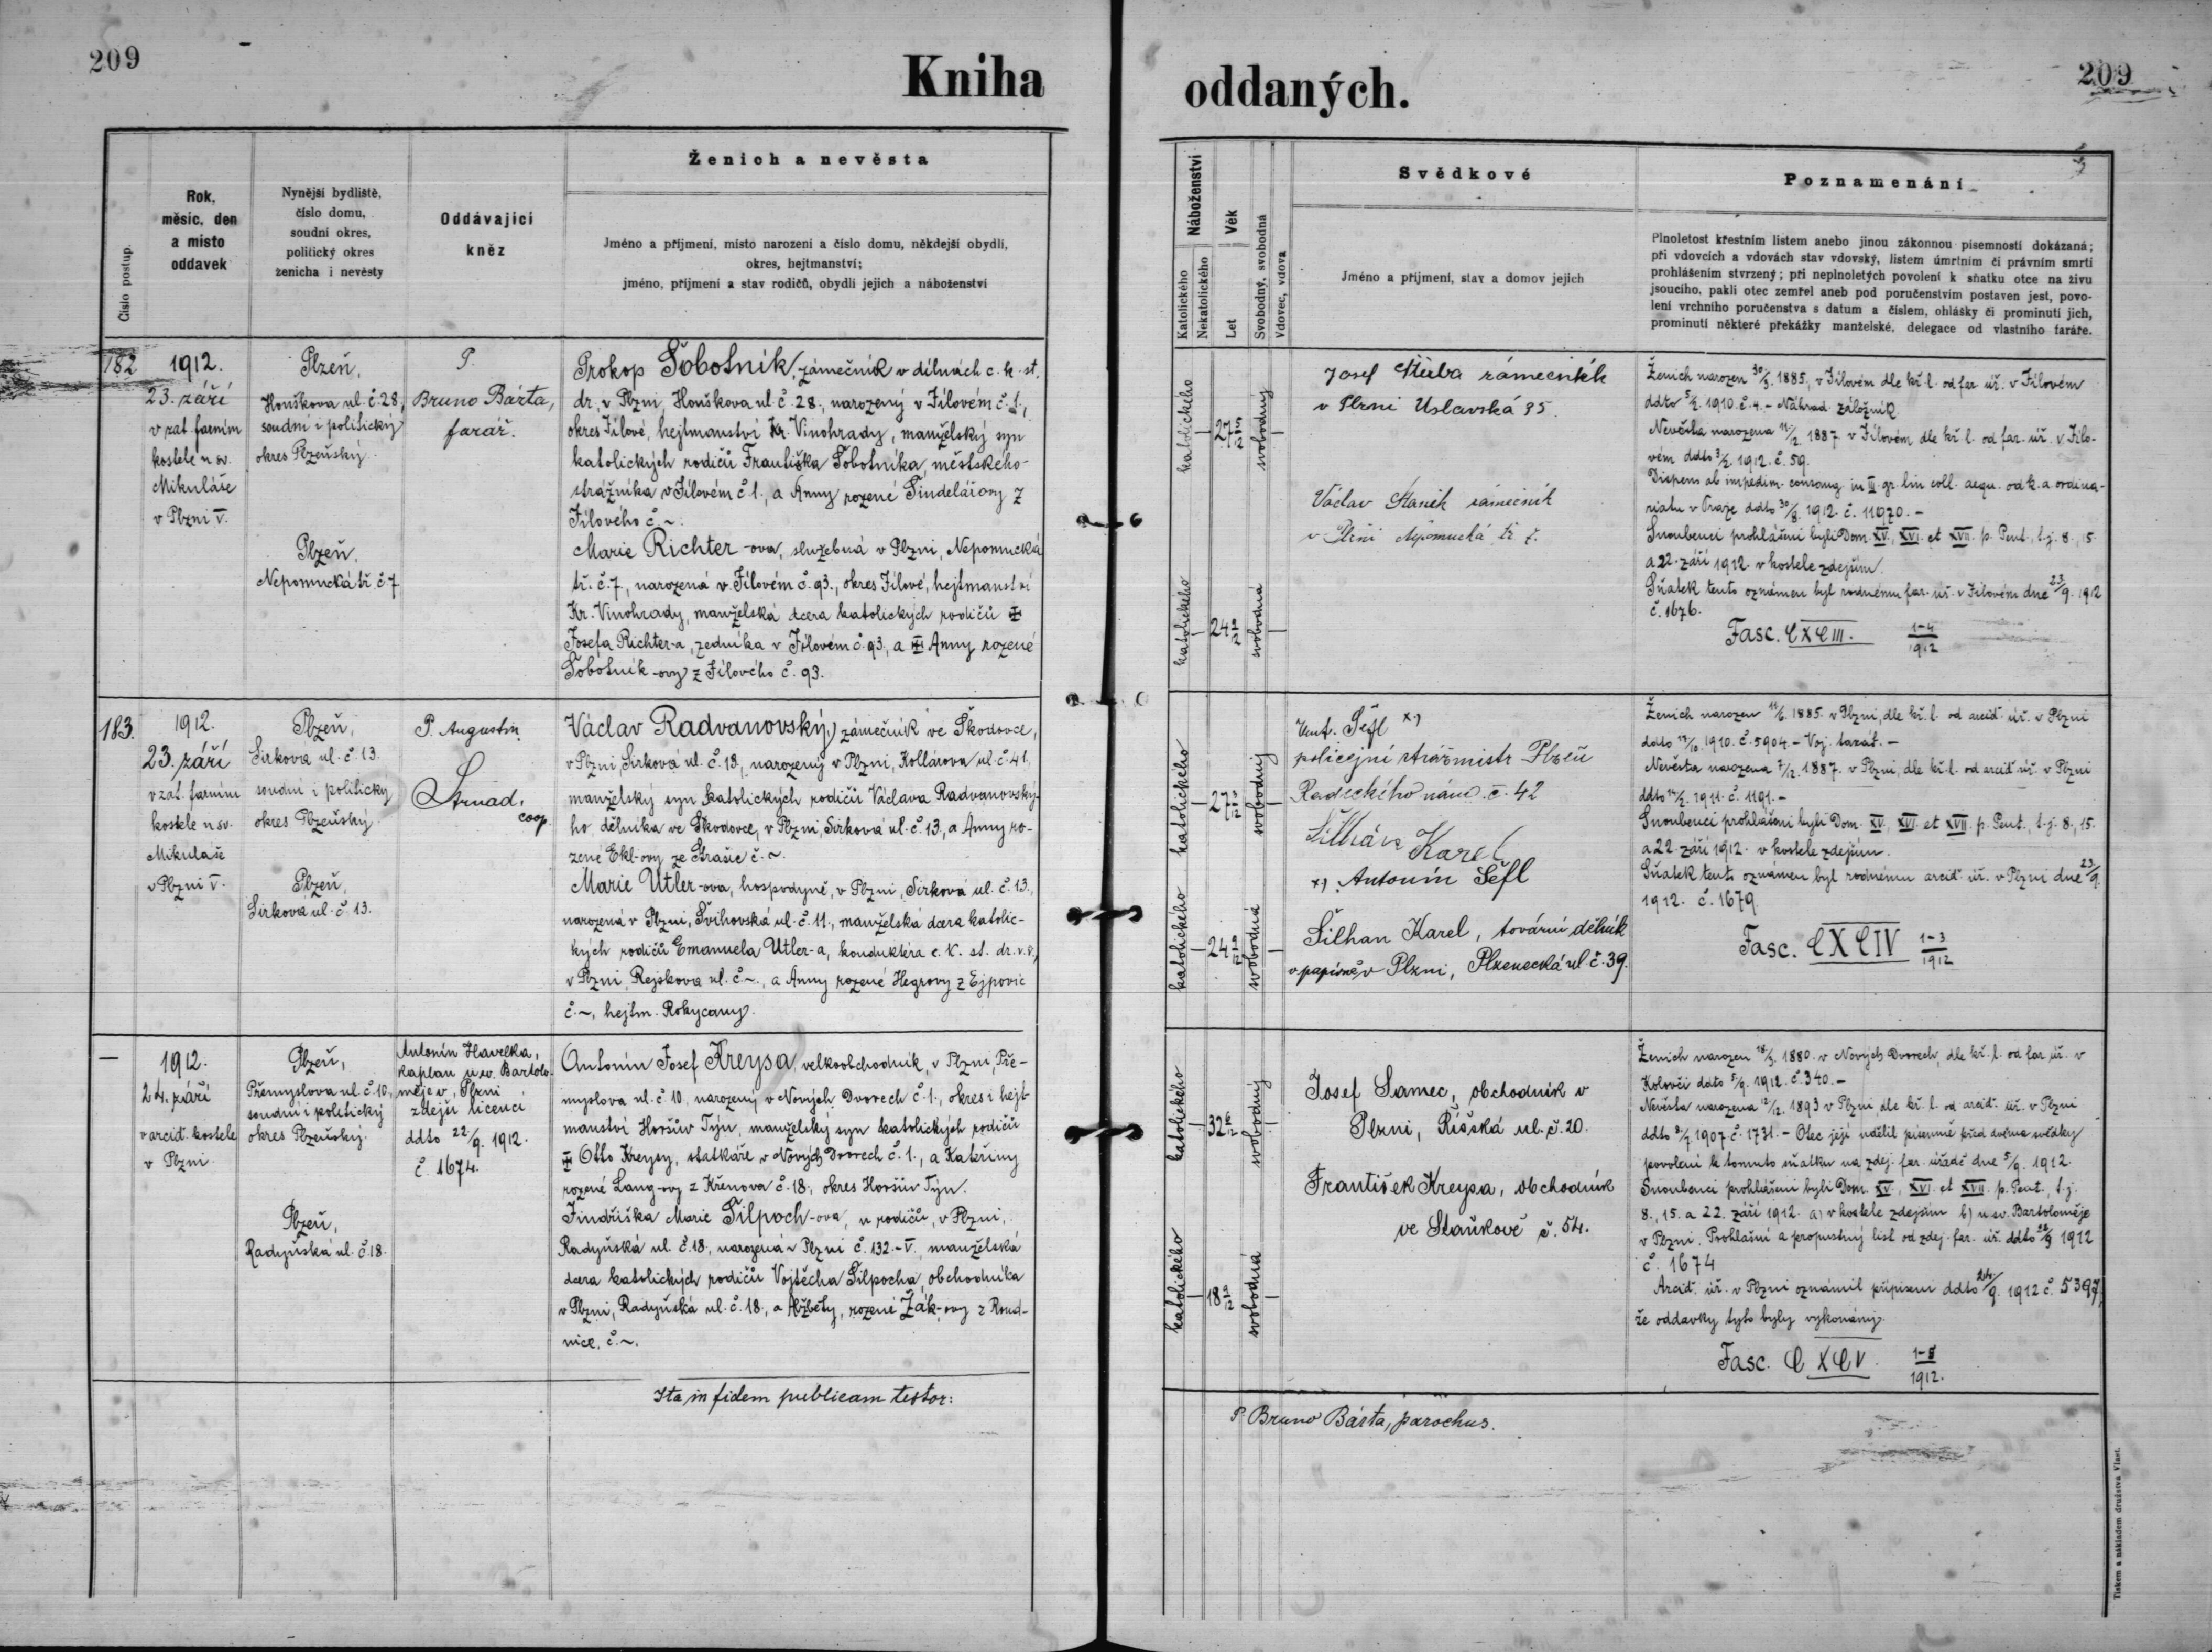 209
Kniha
oddaných.
209
Číslo postup.
Rok,
měsíc, den
a místo
oddavek
Nynější bydliště,
číslo domu,
soudní okres,
politický okres
ženicha i nevěsty
Oddávající
kněz
Ženich a nevěsta
Jméno a příjmení, místo narození a číslo domu, někdejší obydlí,
okres, hejtmanství;
jméno, příjmení a stav rodičů, obydlí jejich a náboženství
Náboženství
Katolického
Nekatolického
Věk
Let
Svobodný, svobodná
Vdovec, vdova
Svědkové
Jméno a příjmení, stav a domov jejich
Poznamenání
Plnoletost křestním listem anebo jinou zákonnou písemností dokázaná;
při vdovcích a vdovách stav vdovský, listem úmrtním či právním smrti
prohlášením stvrzený; při neplnoletých povolení k sňatku otce na živu
jsoucího, pakli otec zemřel aneb pod poručenstvím postaven jest, povo-
lení vrchního poručenstva s datum a číslem, ohlášky či prominutí jich,
prominutí některé překážky manželské, delegace od vlastního faráře.
182
1912.
23. září
v zat. farním
kostele u sv.
Mikuláše
v Plzni V.
Plzeň,
Houškova ul. č. 28,
soudní i politický
okres Plzeňský.
Plzeň,
Nepomucká tř. č. 7
P.
Bruno Bárta,
farář.
Prokop Šobotník, zámečník v dílnách c. k. st.
dr., v Plzni, Houškova ul. č. 28., narozený v Jílovém č. 1.,
okres Jílové, hejtmanství Kr. Vinohrady, manželský syn
katolických rodičů Františka Šobotníka, městského
strážníka v Jílovém č. 1., a Anny rozené Šindelářovy z
Jílového č. ~.
Marie Richter-ova, služebná v Plzni, Nepomucká
tř. č. 7, narozená v Jílovém č. 93., okres Jílové, hejtmanství
Kr. Vinohrady, manželská dcera katolických rodičů
Josefa Richter-a, zedníka v Jílovém č. 93., a Anny rozené
Šobotník-ovy z Jílového č. 93.
katolického
27 5/12
svobodný
katolického
24 9/12
svobodná
Josef Stúba zámečník
v Plzni Uslavská 35.
Václav Staněk zámečník
v Plzni Nepomucká tř. 7.
Ženich narozen 30/3. 1885., v Jílovém dle kř. l. od far. úř. v Jílovém
ddto 5/2. 1910. č. 4. – Náhrad. záložník.
Nevěsta narozena 11/12. 1887. v Jílovém, dle kř. l. od far. úř. v Jílo-
vém ddto 3/2. 1912. č. 59.
Dispens ab impedim. consang. in III. gr. lin. coll. aequ. od k. a. ordina-
riatu v Praze ddto 30/8. 1912. č. 11970. –
Snoubenci prohlášeni byli Dom. XV., XVI. et XVII. p. Pent., t. j. 8., 15.
a 22. září 1912. v kostele zdejším.
Sňatek tento oznámen byl rodnému far. úř. v Jílovém dne 23/9. 1912
č. 1676.
Fasc. CXCIII. 1-4/1912
183.
1912.
23. září
v zat. farním
kostele u sv.
Mikuláše
v Plzni V.
Plzeň,
Sirková ul. č. 13.
soudní i politický
okres Plzeňský.
Plzeň,
Sirková ul. č. 13.
P. Augustin
Strnad,
coop.
Václav Radvanovský, zámečník ve Škodovce,
v Plzni, Sirková ul. č. 13., narozený v Plzni, Kollárova ul. č. 41,
manželský syn katolických rodičů Václava Radvanovský-
ho dělníka ve Škodovce, v Plzni, Sirková ul. č. 13, a Anny ro-
zené Ekl-ovy ze Strašic č. ~.
Marie Utler-ova, hospodyně, v Plzni, Sirková ul. č. 13.,
narozená v Plzni, Švihovská ul. č. 11., manželská dcera katolic-
kých rodičů Emanuela Utler-a, konduktéra c. k. st. dr. v. v.,
v Plzni, Rejskova ul. č. ~., a Anny rozené Hegrovy z Ejpovic
č. ~, hejtm. Rokycany.
katolického
27 3/12
svobodný
katolického
24 9/12
svobodná
Ant. Šefl x)
policejní strážmistr Plzeň
Radeckého nám. č. 42
Šilhán Karel
x) Antonín Šefl
Šilhan Karel, tovární dělník
v papírně v Plzni, Plzenecká ul č. 39.
Ženich narozen 11/6. 1885. v Plzni, dle kř. l. od arcid. úř. v Plzni
ddto 17/10. 1910. č. 5904. – Voj. taxát. –
Nevěsta narozena 7/12. 1887. v Plzni, dle kř. l. od arcid. úř. v Plzni
ddto 14/2. 1911. č. 1191. –
Snoubenci prohlášeni byli Dom. XV., XVI. et XVII. p. Pent., t. j. 8., 15.
a 22. září 1912. v kostele zdejším.
Sňatek tento oznámen byl rodnému arcid. úř. v Plzni dne 23/9.
1912. č. 1679.
Fasc. CXCIV 1-3/1912
–
1912.
24. září
v arcid. kostele
v Plzni.
Plzeň,
Přemyslova ul. č. 10.,
soudní i politický
okres Plzeňský.
Plzeň,
Radyňská ul. č. 18.
Antonín Havelka,
kaplan u sv. Bartolo-
měje v Plzni
zdejší licencí
ddto 22/9. 1912.
č. 1674.
Antonín Josef Kreysa, velkoobchodník, v Plzni, Pře-
myslova ul. č. 10., narozený v Nových Dvorech č. 1., okres i hejt-
manství Horšův Týn, manželský syn katolických rodičů
Otto Kreysy, statkáře v Nových Dvorech č. 1., a Kateřiny
rozené Lang-ovy z Křenova č. 18., okres Horšův Týn.
Jindřiška Marie Šilpoch-ova, u rodičů, v Plzni,
Radyňská ul. č. 18., narozená v Plzni č. 132.-V., manželská
dcera katolických rodičů Vojtěcha Šilpocha, obchodníka
v Plzni, Radyňská ul. č. 18., a Alžběty, rozené Žák-ovy z Roud-
nice, č. ~.
katolického
32 6/12
svobodný
katolického
18 9/12
svobodná
Josef Samec, obchodník v
Plzni, Říšská ul. č. 20.
František Kreysa, obchodník
ve Staňkově č. 54.
Ženich narozen 18/3. 1880. v Nových Dvorech, dle kř. l. od far. úř. v
Kolovči ddto 5/9. 1912. č. 340. –
Nevěsta narozena 12/12. 1893 v Plzni dle kř. l. od arcid. úř. v Plzni
ddto 8/7. 1907. č. 1731. – Otec její udělil písemně před dvěma svědky
povolení k tomuto sňatku na zdej. far. úřadě dne 5/9. 1912.
Snoubenci prohlášeni byli Dom. XV., XVI. et XVII. p. Pent., t. j.
8., 15. a 22. září 1912. a) v kostele zdejším b) u sv. Bartoloměje
v Plzni. Prohlašní a propustný list od zdej. far. úř. ddto 22/9 1912
č. 1674
Arcid. úř. v Plzni oznámil přípisem ddto 24/9. 1912 č. 5397,
že oddavky tyto byly vykonány.
Fasc. CXCV. 1-5/1912.
Ita in fidem publicam testor:
P. Bruno Bárta, parochus.
Tiskem a nákladem družstva Vlast.